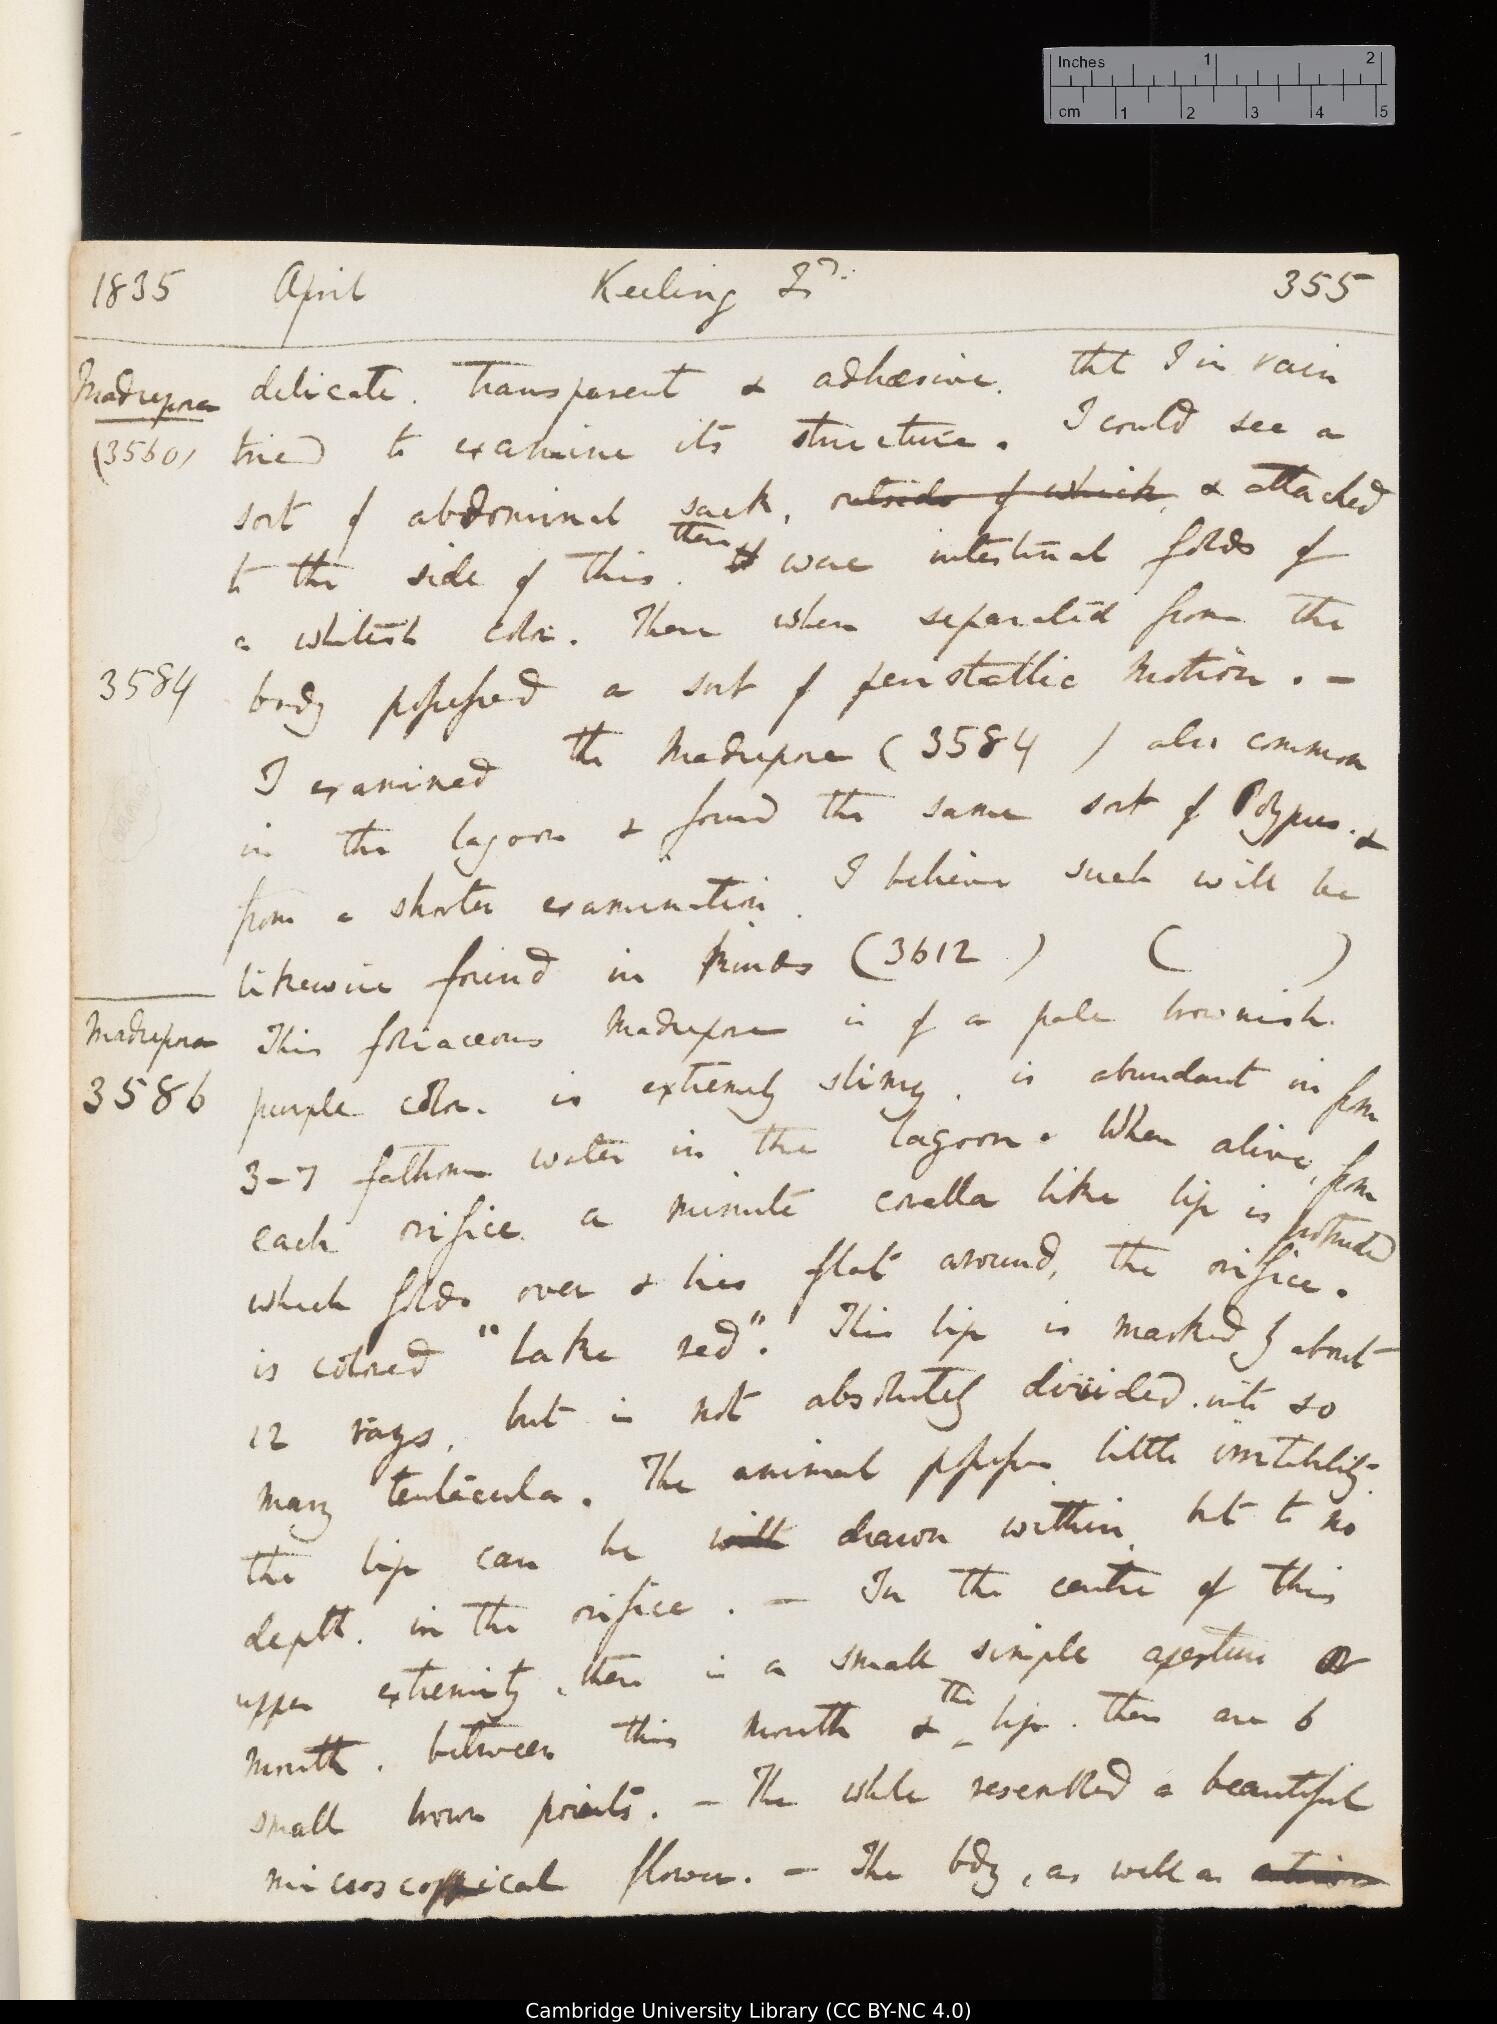 Inches 1 2
cm 1 2 3 4 5
1835 April Keeling Id: 355
Madrepora delicate. transparent & adhæsive. that I in vain
(3560) tried to examine its structure. I could see a
sort of abdominal sack, outside of which, & attached
to the side of this. there it were intestinal folds of
a whitish color. These when separated from the
3584 body possessed a sort of peristaltic motion. —
I examined the Madrepore (3584 ) also common
in the lagoon & found the same sort of Polypus. &
from a shorter examination. I believe such will be
likewise found in kinds (3612 ) ( )
Madrepora This foliaceous Madrepora is of a pale brownish.
3586 purple color. is extremely slimy. is abundant in from
3-7 fathoms water in the lagoon. When alive, from
each orifice. a minute corolla like lip is protruded
which folds over & lies flat around, the orifice.
is colored "lake red". This lip is marked by about
12 rays, but is not absolutely divided. into so
many tentacula. The animal possesses little irritability.
the lip can be with drawn within, but to no
depth. in the orifice. — In the centre of this
upper extremity, there is a small simple aperture or
mouth. between this mouth & the lip. there are 6
small brown points. — The whole resembled a beautiful
microscopical flower. — The body, as well as
Cambridge University Library (CC BY-NC 4.0)